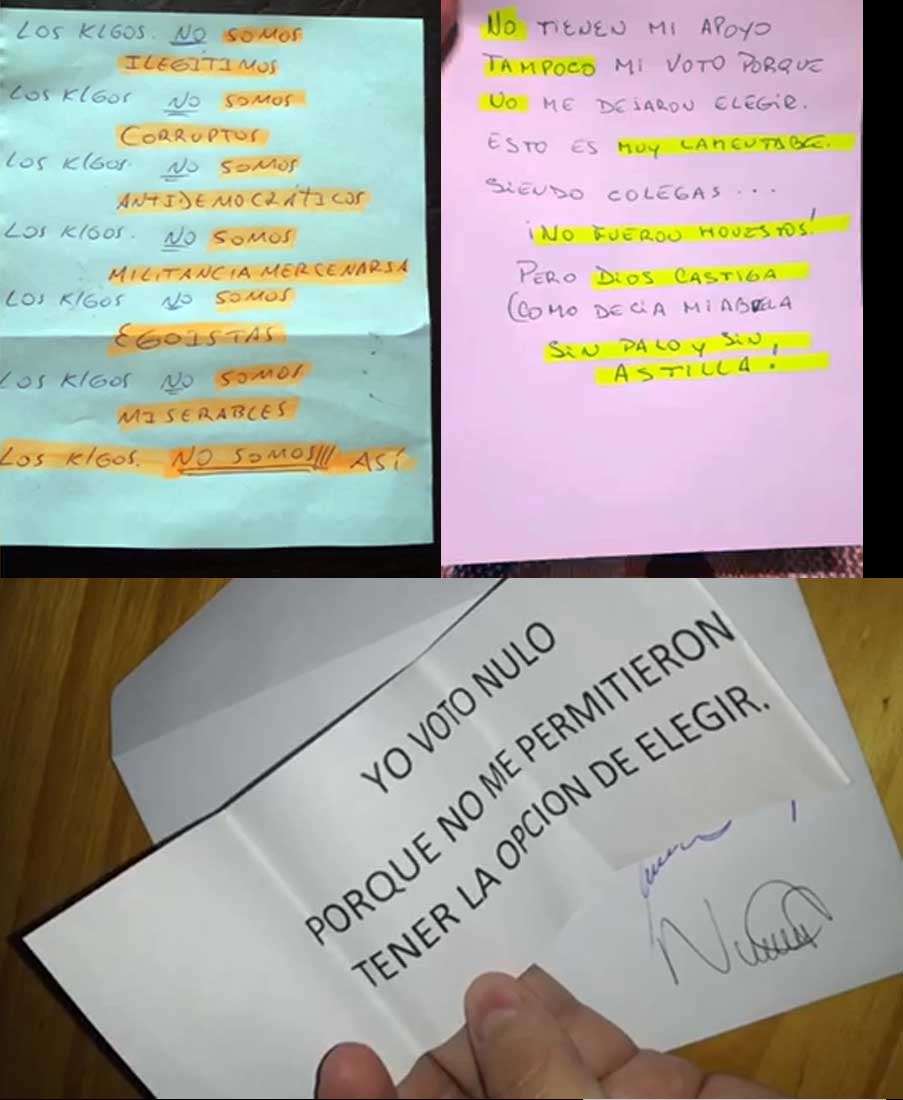 LOS KLGOS. NO SOMOS
ILEGÍTIMOS
LOS KlGOS NO SOMOS
CORRUPTOS
LOS KlGOS. NO SOMOS
ANTIDEMOCRÁTICOS
LOS KlGOS. NO SOMOS
MILITANCIA MERCENARSA
LOS KlGOS NO SOMOS
EGOISTAS
LOS KlGOS NO SOMOS
MISERABLES
LOS KlGOS. NO SOMOS/// ASÍ
NO TIENEN MI APOYO
TAMPOCO MI VOTO PORQUE
NO ME DEJARON ELEGIR.
ESTO ES MUY LAMENTABLE.
SIENDO COLEGAS...
¡NO FUERON HONESTOS!
PERO DIOS CASTIGA
(COMO DECIA MI ABUELA
SIN PALO Y SIN
ASTILLA!
YO VOTO NULO
PORQUE NO ME PERMITIERON
TENER LA OPCION DE ELEGIR.